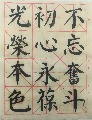 不忘奮斗
初心永葆
光榮本色